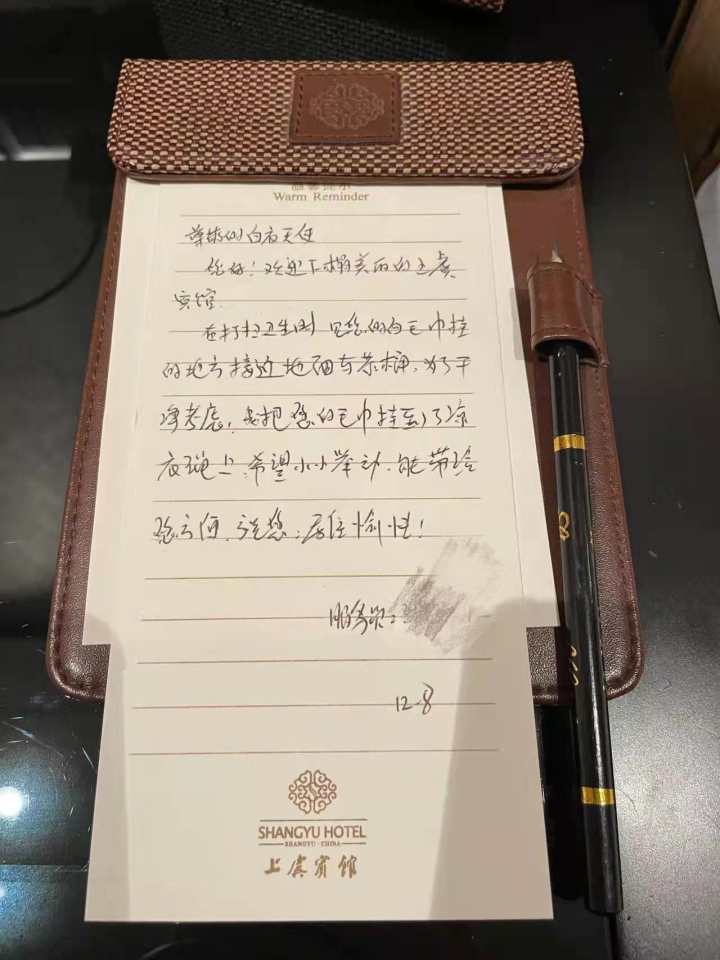 温馨提示
Warm Reminder
尊敬的白衣天使
您好！欢迎下榻美丽的上虞
宾馆.
在打扫卫生时 见您的白毛巾挂
的地方接近地面与茶桶,为了干
净考虑,我把您的毛巾挂到了凉
衣绳上.希望小小举动.能带给
您方便.祝您:居住愉快!
服务员:
12.8
SHANGYU HOTEL
SHANGYU·CHINA
上虞宾馆